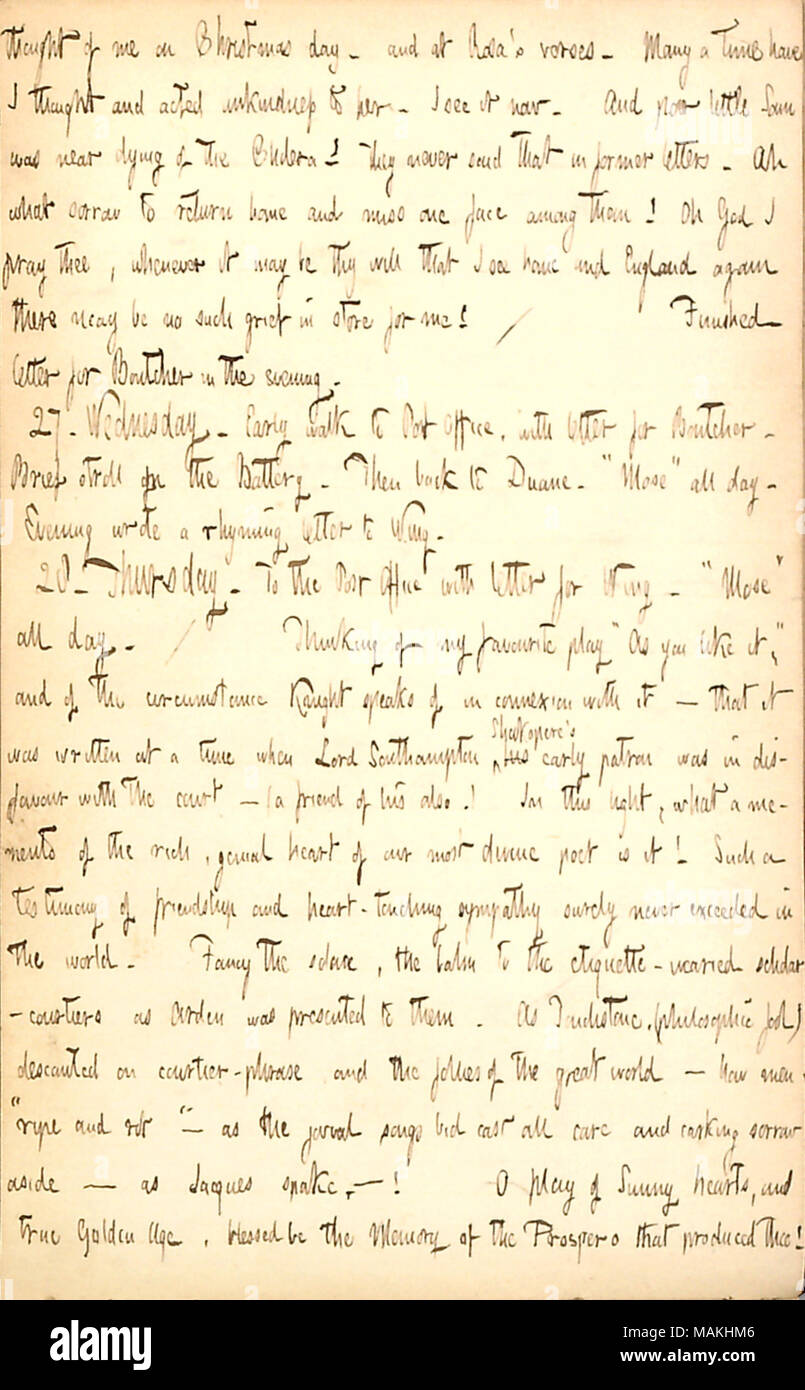 thought of me on Christmas day - and at Rosa's verses - Many a time have
I thought and acted unkindness to her - I see it now - And poor little Sam
was near dying of the Cholera! They never said that in former letters - Ah
what sorrow to return home and miss one face among them! Oh God I
pray thee, whenever it may be thy will that I see home and England again
there may be no such grief in store for me! / Finished
letter for Boutcher in the evening -
27 - Wednesday - Early walk to Post Office, with letter for Boutcher -
Brief stroll on the Battery - Then back to Duane - "Mose" all day -
Evening wrote a rhyming letter to Wing -
28 - Thursday - To the Post Office with letter for Wing - "Mose"
all day - / Thinking of my favourite play "As you like it,"
and of the circumstance Knight speaks of in connexion with it - that it
was written at a time when Lord Southampton Shakspere's early patron was in dis-
favour with the court - (a friend of his also!) In this light, what a me-
mento of the rich, genial heart of our most divine poet is it! Such a
testimony of friendship and heart-touching sympathy surely never exceeded in
the world - Fancy the solace, the balm to the etiquette-wearied scholar
-courtiers as Arden was presented to them. As Touchstone, (philosophic fool)
descanted on courtier-phrase and the follies of the great world - how men
"ripe and rot" - as the jovial songs bid cast all care and carking sorrow
aside - as Jacques spake, -! O play of Sunny hearts, and
true Golden Age, blessed be the Memory of the Prospero that produced thee!
alamy
alamy
Image ID: MAKHM6
www.alamy.com